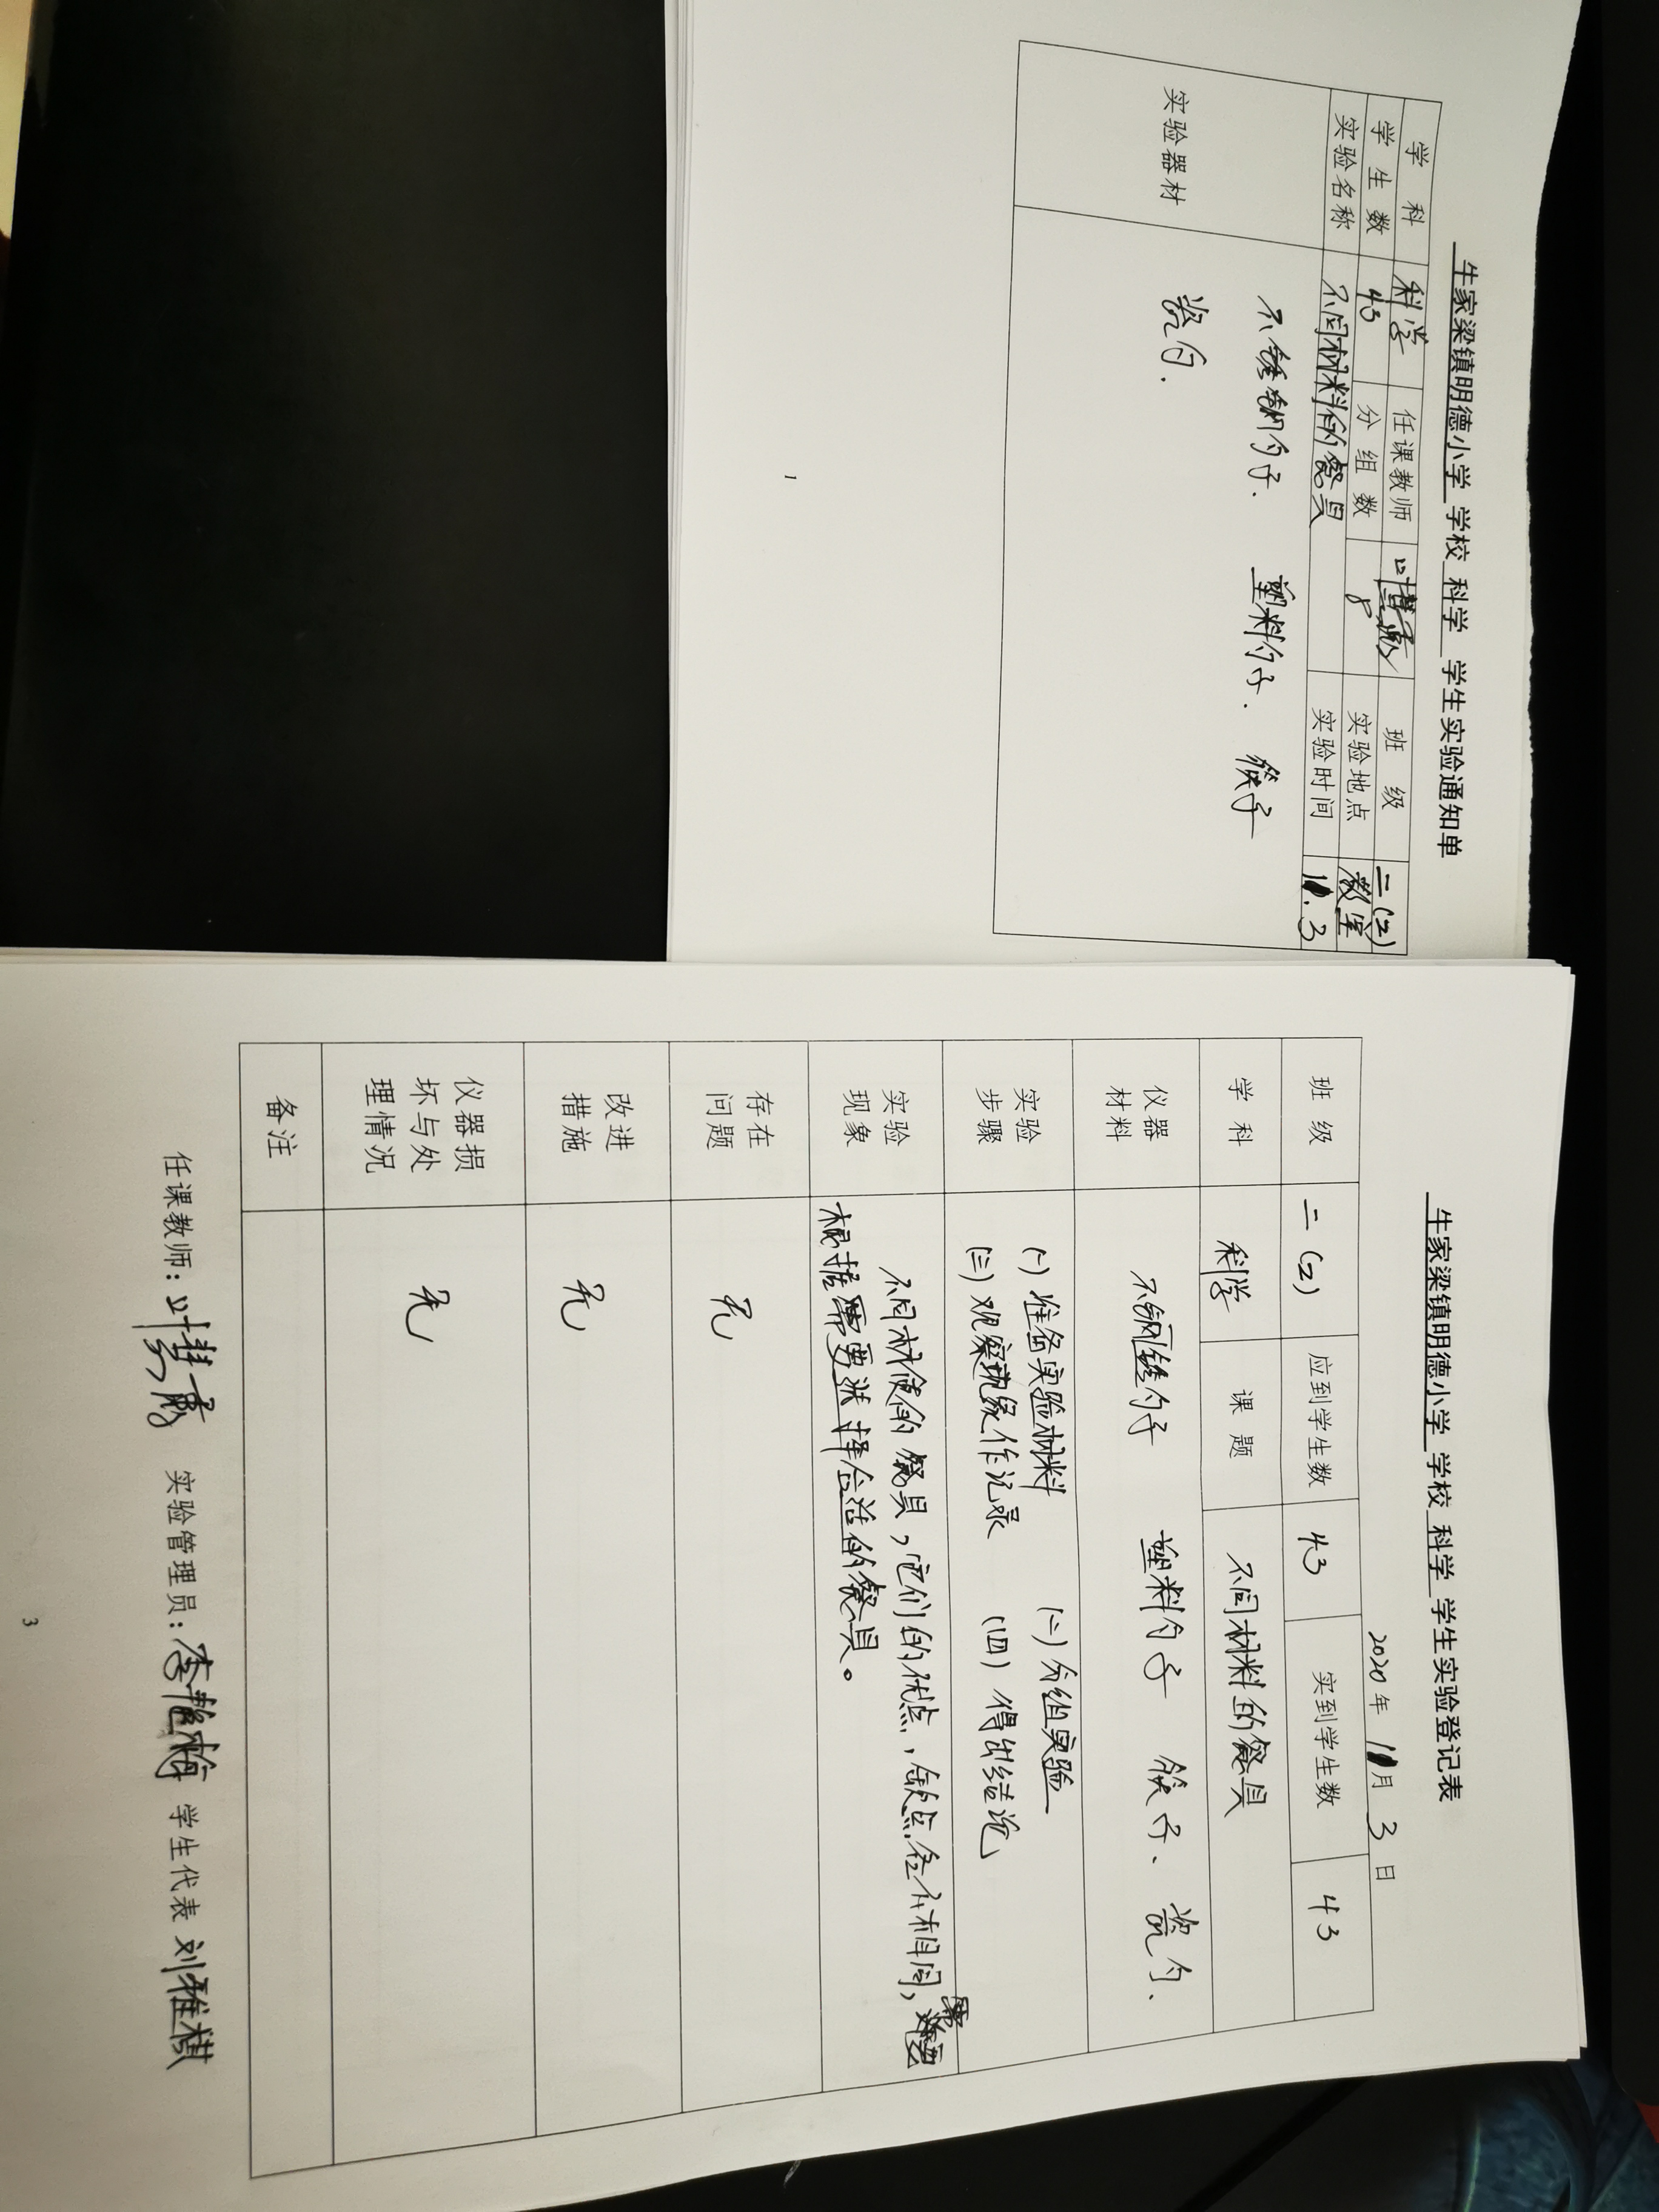 牛家梁镇明德小学 学校 科学 学生实验通知单
学科 科学 任课教师 班级 二(2)
学生数 43 分组数 8 实验地点 教室
实验名称 不同材料的餐具 实验时间 11.3
实验器材
不锈钢勺子. 塑料勺子. 筷子
瓷勺.
1
牛家梁镇明德小学 学校 科学 学生实验登记表
2020年 11月 3日
班级 二(2) 应到学生数 43 实到学生数 43
学科 科学 课题 不同材料的餐具
仪器材料 不钢锈勺子 塑料勺子 筷子. 瓷勺.
实验步骤 (一)准备实验材料 (二)分组实验
(三)观察现象作记录 (四)得出结论
实验现象 不同材使的餐具,它们的优点,缺点各不相同,
根据需要选择合适的餐具。
存在问题 无
改进措施 无
仪器损坏与处理情况 无
备注
任课教师: 实验管理员: 学生代表 刘雅棋
3